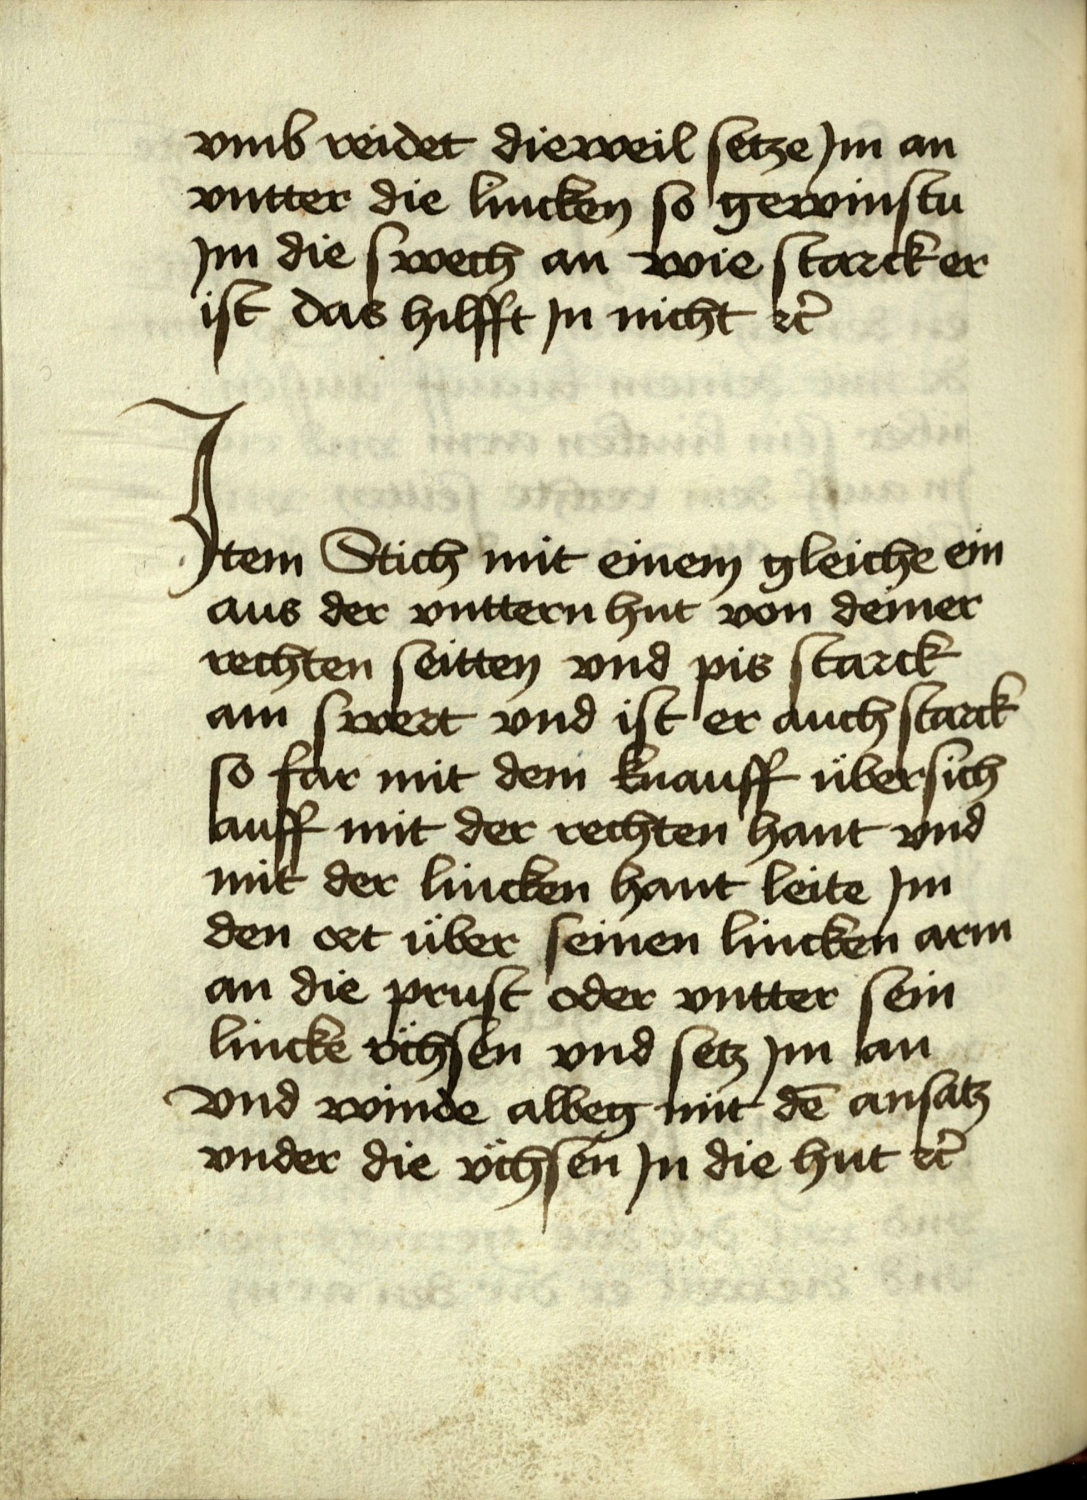 vmb reidet dieweil setze Jm an
vntter die lincken so gewinstu
Jm die swech an wie starck er
ist das hilfft Jn nicht rc̃
Jtem Stich mit einem gleiche ein
aus der vnttern hut von deiner
rechten seitten vnd pis starck
am swert vnd ist er auch starck
so far mit dem knauff übersich
auff mit der rechten hant vnd
mit der lincken hant leite Jm
den ort über seinen lincken arm
an die prust oder vntter sein
lincke v̈chsen vnd setz Jm an
vnd winde albeg mit dē ansatz
vnder die v̈chsen Jn die hut rc̃